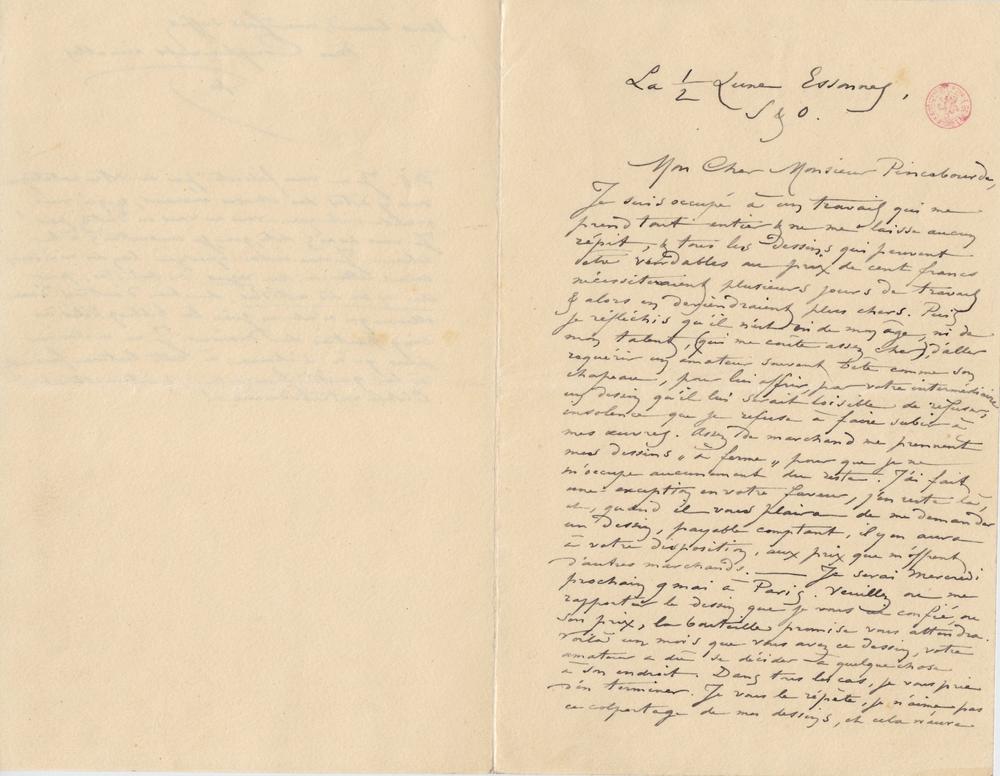 La 1/2 Lune Essonnes,
S & O.
Mon Cher Monsieur Pincebourde,
Je suis occupé à un travail qui me
prend tout entier & ne me laisse aucun
répit, & tous les dessins qui peuvent
être vendables au prix de cent francs
nécessiteraient plusieurs jours de travail
& alors en deviendraient plus chers. Puis
je réfléchis qu'il n'est ni de mon âge, ni de
mon talent, (qui me coute assez cher) d'aller
requérir un amateur souvent bête comme son
chapeau, pour lui offrir, par votre intermédiaire
un dessin qu'il lui serait loisible de refuser,
insolence que je refuse à faire subir à
mes œuvres. Assez de marchand me prennent
mes dessins „ à ferme „ pour que je ne
m'occupe aucunement du reste. J'ai fait
une exception en votre faveur, j'en reste là,
et, quand il vous plaira de me demander
un dessin, payable comptant, il y en aura
à votre disposition, aux prix que m'offrent
d'autres marchands. — Je serai Mercredi
prochain 9 mai à Paris. Veuillez ou me
rapporter le dessin que je vous ai confié, ou
son prix, la bouteille promise vous attendra.
Voilà un mois que vous avez ce dessin, votre
amateur a dû se décider à quelque chose
à son endroit. Dans tous les cas, je vous prie
d'en terminer. Je vous le répète, je n'aime pas
ce colportage de mes dessins, et cela n'aura